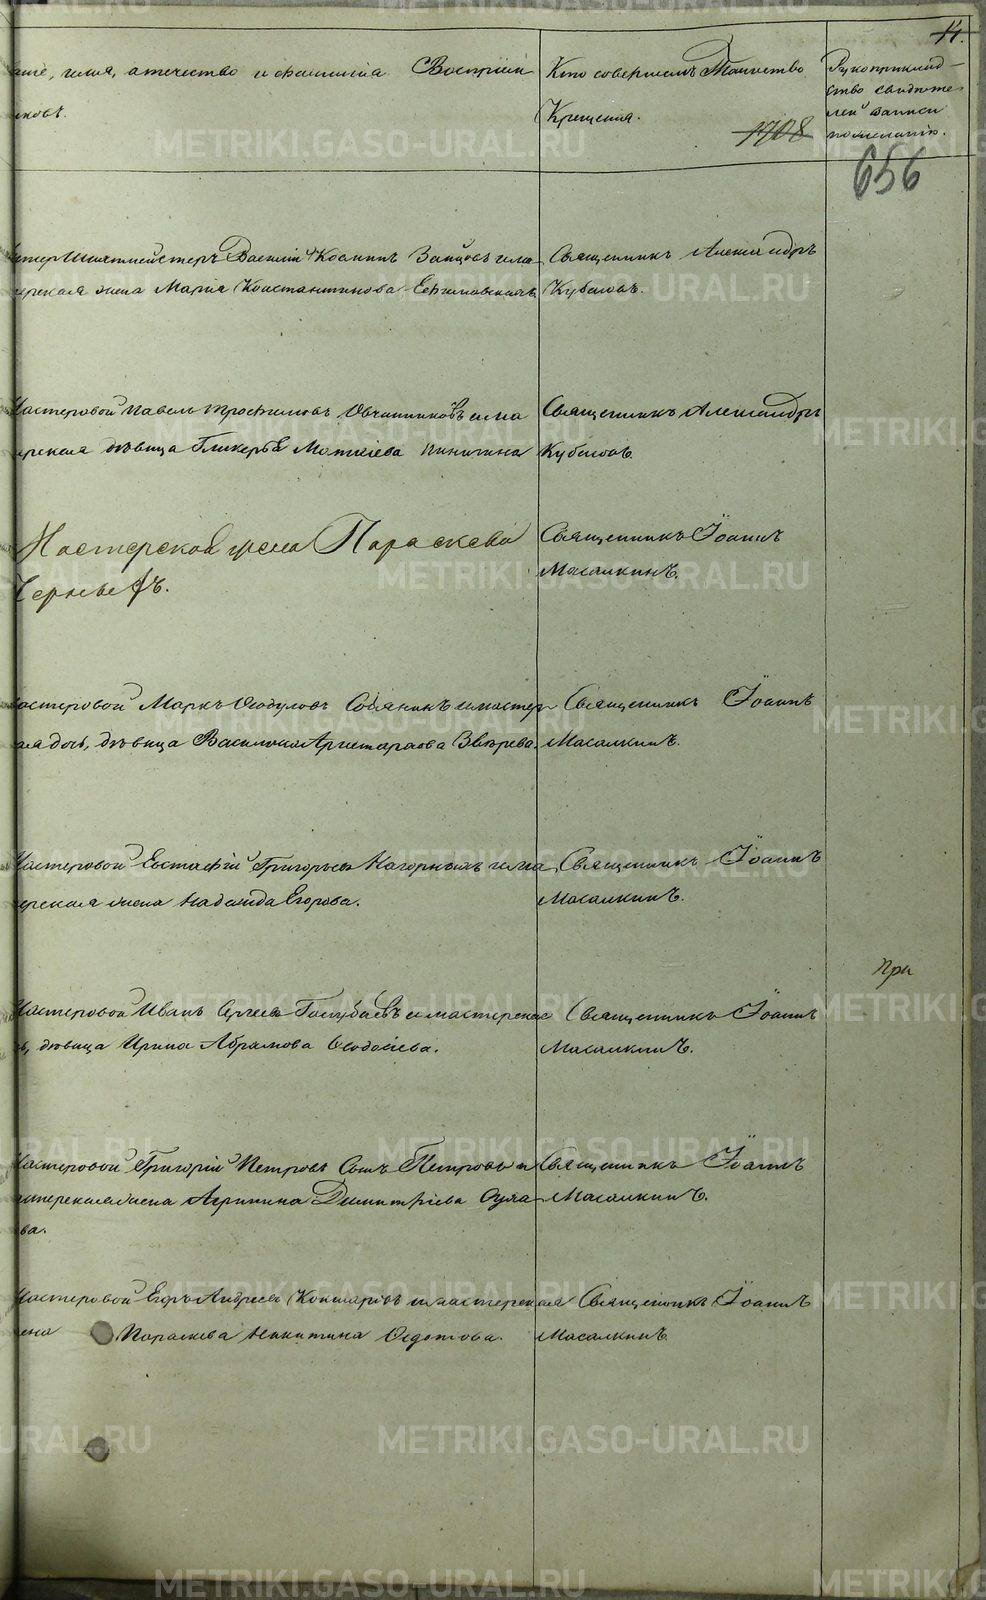 14.
ніе, имя, отчество и фамилія Воспріем
никовъ.
Кто совершилъ Таинство
Крещенія.
1708
Рукоприклад-
ство свидѣте-
лей записи
по желанію.
656
Василій Зайцовъ и ма
терская жена Марія Константинова
Священникъ Александръ
Мастеровой Павелъ Трофимовъ Овчинниковъ и ма
терская дѣвица Гликерья Пинигина
Священникъ Александръ
Мастерская жена Параскева
Черныхъ.
Священникъ Іоаннъ
Масалкинъ.
Мастеровой Маркъ Ѳеодуловъ Собянинъ и мастер
ская дочь, дѣвица Василиса Аристархова Звѣрева.
Священникъ Іоаннъ
Масалкинъ.
Мастеровой Евстафій Григорьевъ Нагорныхъ и ма
терская жена Надежда Егорова.
Священникъ Іоаннъ
Масалкинъ.
Мастеровой Иванъ Сергѣевъ Голубцевъ и мастерская
дѣвица Ирина Абрамова Ѳеодосіева.
Священникъ Іоаннъ
Масалкинъ.
При
Мастеровой Григорій Петровъ Сынъ Петровъ и
мастерская жена Агрипина Димитріева
ва.
Священникъ Іоаннъ
Масалкинъ.
Мастеровой Егоръ Андреевъ и мастерская
жена Параскева Никитина Ѳедотова.
Священникъ Іоаннъ
Масалкинъ
METRIKI.GASO-URAL.RU